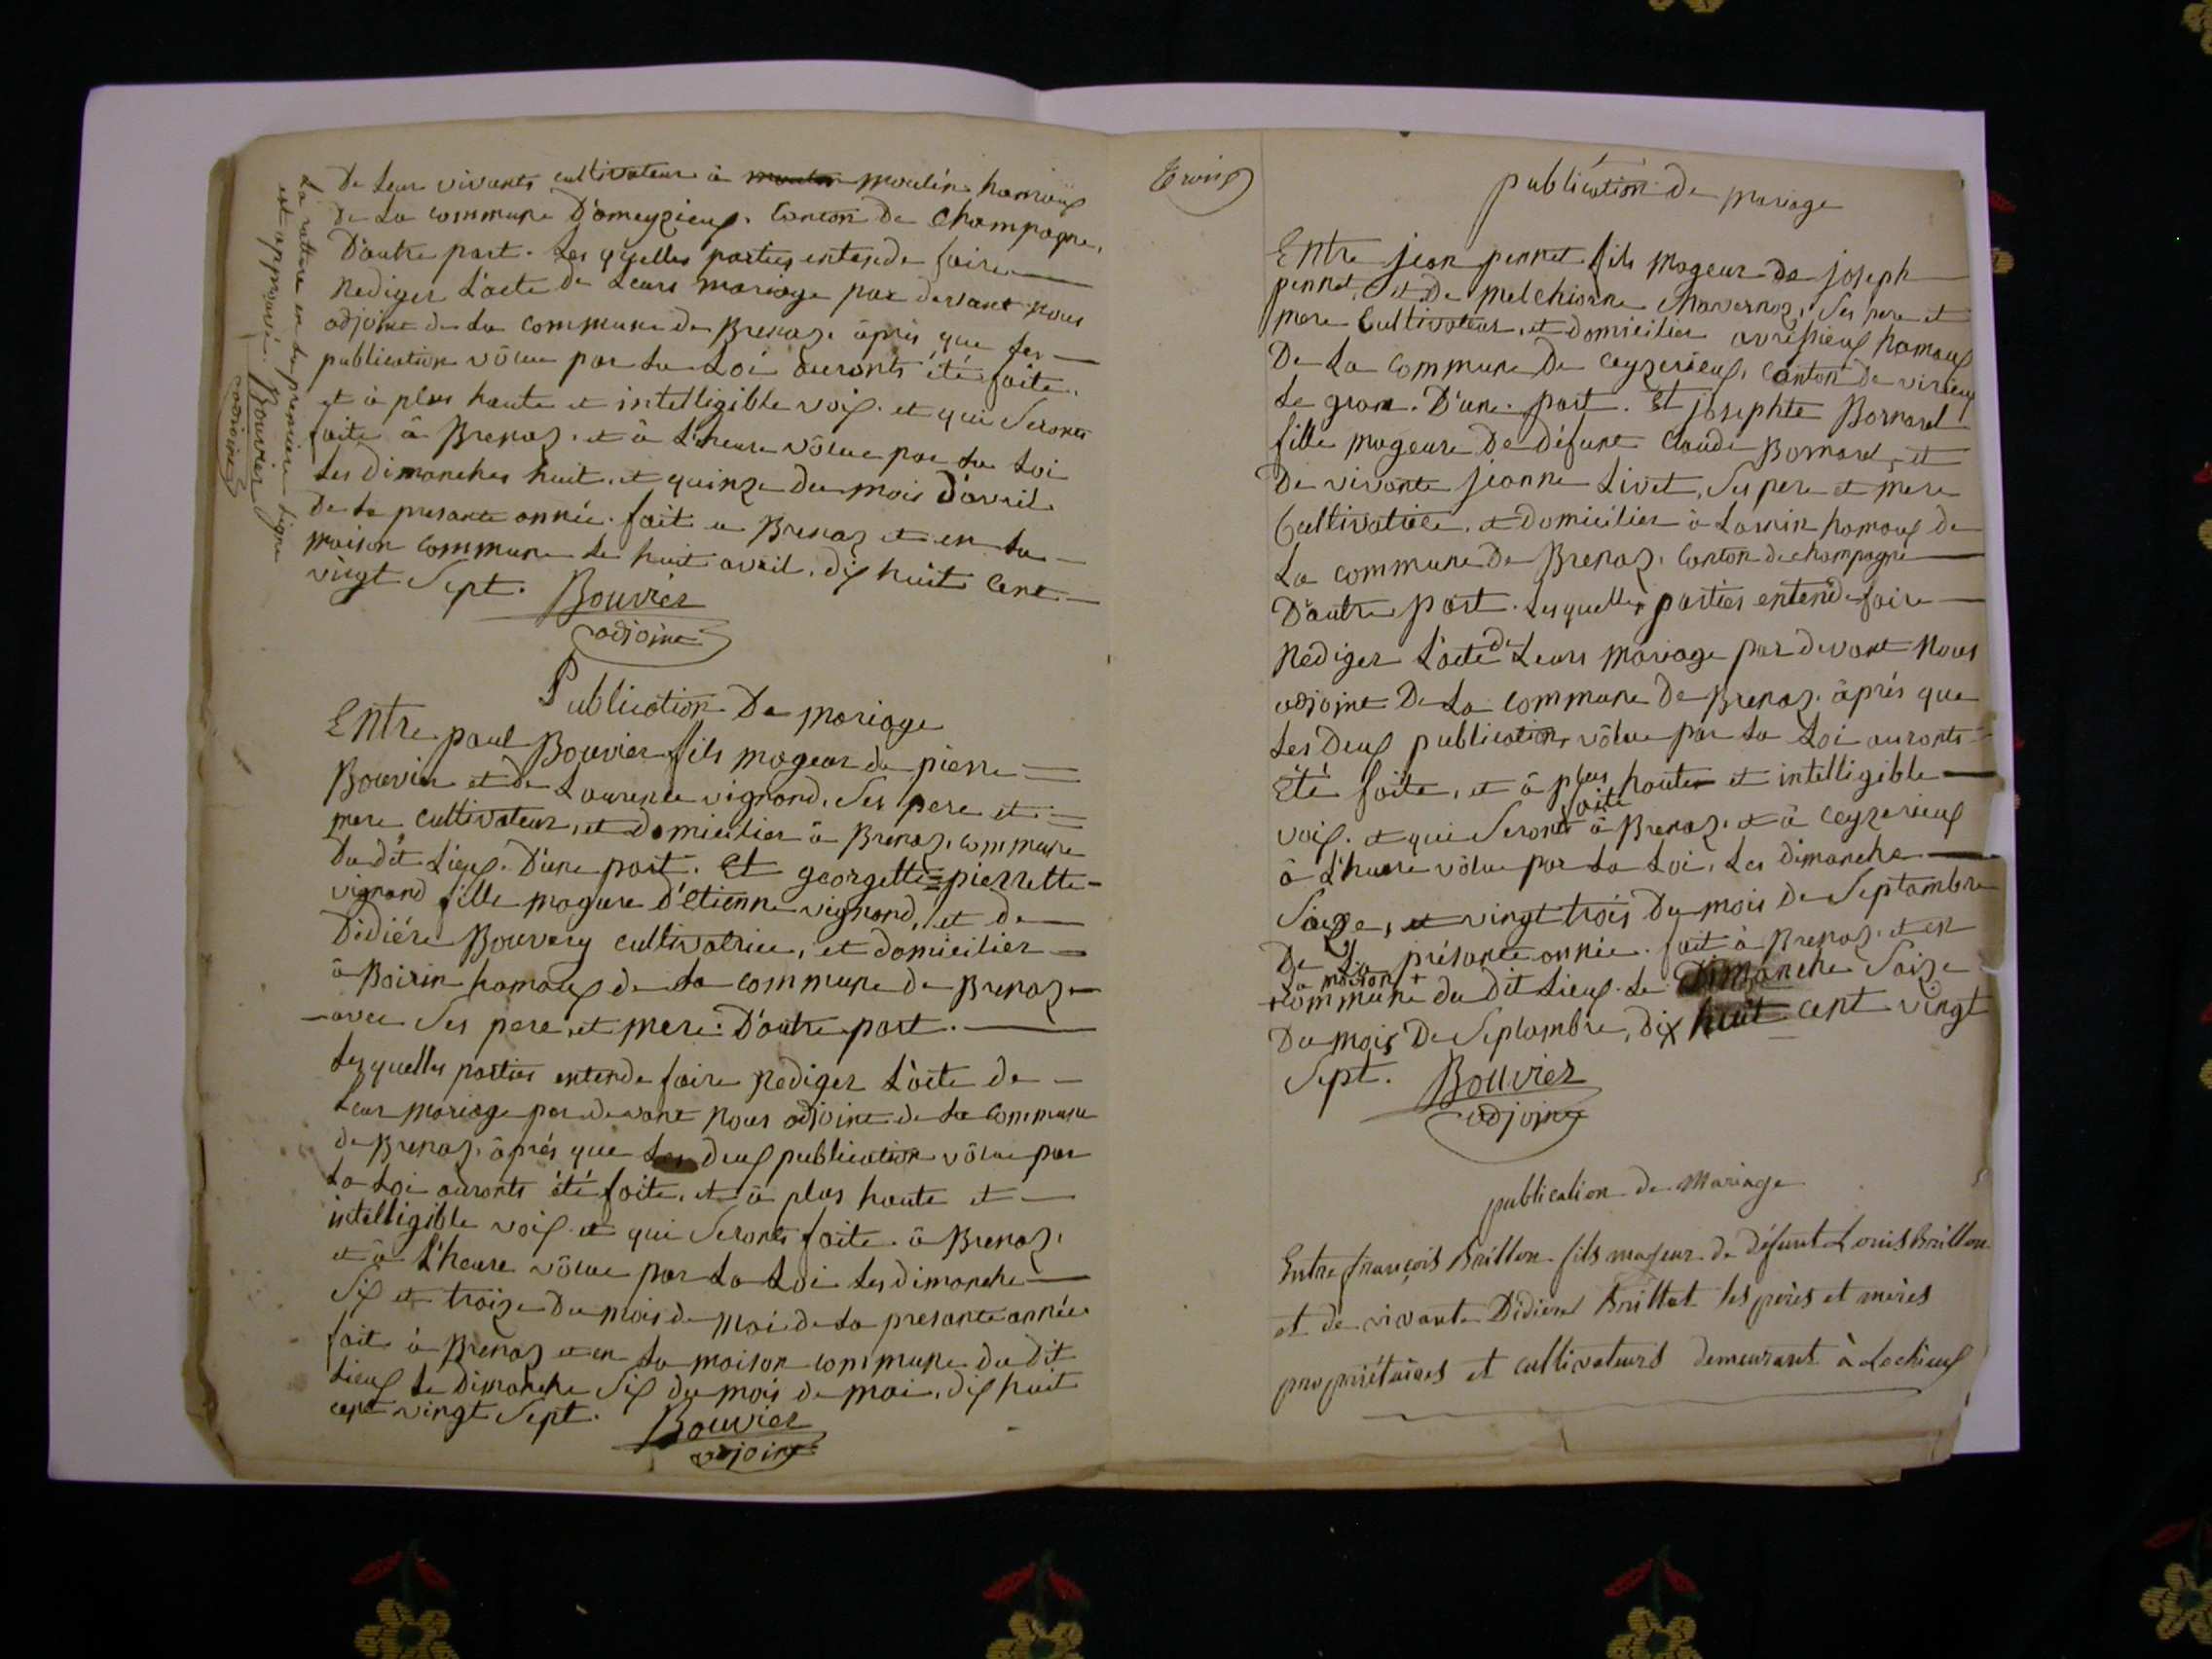 De Leur vivants cultivateur à moulin hamaux
de La commune D'ameyzieux. Canton De Champagne,
D'autre part. Les quelles parties entende faire
Rediger L'acte de Leurs mariage par devant nous
adjoint de La commune de Brenaz. âprès que Les
publication vôlue par La Loi auronts été faite.
et à plus haute et intelligible voix. et qui Seronts
faite à Brenaz. et à L'heure vôlue par La Loi
Les Dimanches huit, et quinze du mois D'avril.
De La presante année. fait a Brenaz et en La
maison Commune Le huit avril, dix huits Cent
vingt Sept. Bouvier
adjoint
La rature en La première Ligne
est approuvé. Bouvier
adjoint
Publication De mariage
Entre paul Bouvier fils mageur de pierre
Bouvier et de Laurence vignand, Ses pere et
mere cultivateur, et domicilier à Brenaz, commune
Du dit Lieux. D'une part. Et georgette=pierrette
vignand fille mageure d'Etienne vignand, et de
Didiére Bouvery cultivatrice, et domicilier
à Boirin hamaux de La commune de Brenaz
avec Ses pere, et mere. D'autre part.
Lesquelles parties entende faire Rediger L'acte de
Leur mariage par devant nous adjoint de La Commune
de Brenaz. âprés que Les deux publication vôlue par
La Loi auronts été faite, et à plus haute et
intelligible voix. et qui Seronts faite à Brenaz.
et à L'heure vôlue par La Loi Les dimanche
Six et traize Du mois de mai de La presante année
fait à Brenaz et en La maison commune du dit
Lieux Le Dimanche Six du mois de mai, dix huit
cent vingt Sept. Bouvier
adjoint
Troix
publication De mariage
Entre jean pennet fils mageur de joseph
pennet, et De melchionne Chavernoz, Ses pere et
mere Cultivateur, et domicilier avrissieux hamaux
De La Commune De Ceyzerieux, Canton De virieux
Le gran. D'une part. Et josephte Bornard
fille mageure De Défunt Claude Bornard, et
De vivante jeanne Livet, Ses pere et mere
Cultivatrice, et domicilier à Larvin hamaux de
La Commune De Brenaz. Canton de champagne
D'autre part. Lesquelles parties entende faire
Rédiger L'acte de Leurs mariage par devant Nous
adjoint De La Commune De Brenaz. âprés que
Les Deux publication vôlue par La Loi auronts
Été faite, et à plus haute et intelligible
voix. et qui Seronts faite à Brenaz. et à Ceyzerieux
à L'heure vôlue par La Loi. Les dimanche
Saize, et vingt trois Du mois De Septambre
De La présante année. fait à Brenaz. et en
La maison +
+ commune du dit Lieux. Le Dimanche Saize
Du mois De Septambre, dix huit cent vingt
Sept. Bouvier
adjoint
publication de Mariage
Entre françois Brillon fils majeur de défunt Louis Brillon
et de vivante Didiere Brillat les pères et mères
propriétaires et cultivateurs demeurant à Lochieux